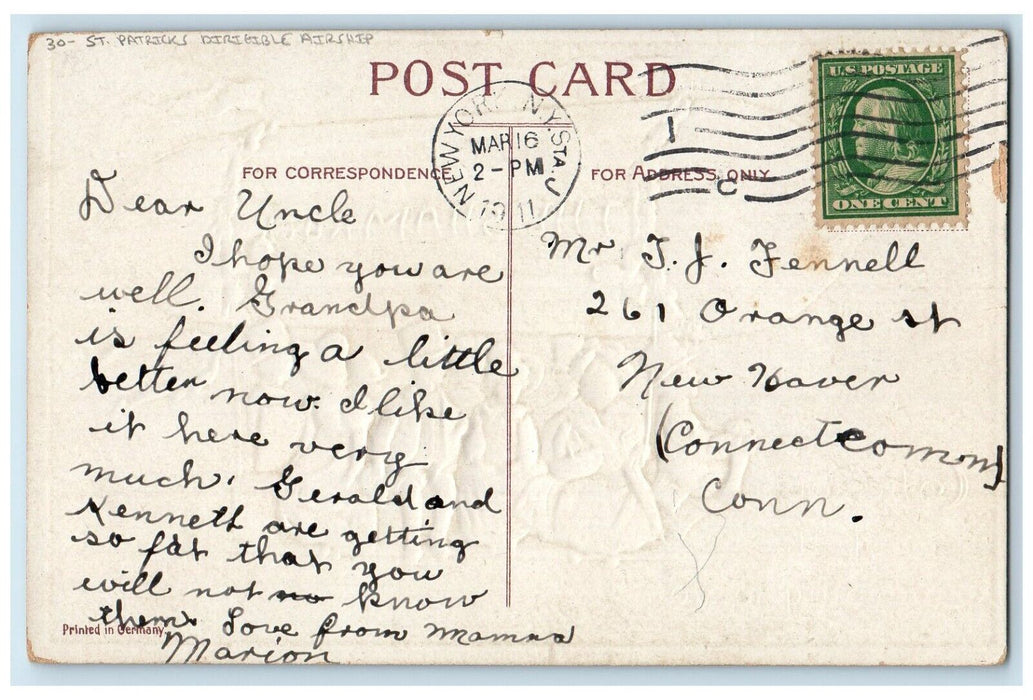 30- ST. PATRICKS DIRIGIBLE AIRSHIP
POST CARD
U.S. POSTAGE
ONE CENT
NEW YORK, N.Y. STA. J
MAR 16
2 - PM
1911
1
C
FOR CORRESPONDENCE
FOR ADDRESS ONLY
Dear Uncle
I hope you are
well. Grandpa
is feeling a little
better now. I like
it here very
much. Gerald and
Kenneth are getting
so fat that you
will not no know
them. Love from Mamma
Marion
Mr. T. J. Fennell
261 Orange st
New Haven
(Connectcomon)
Conn.
Printed in Germany.